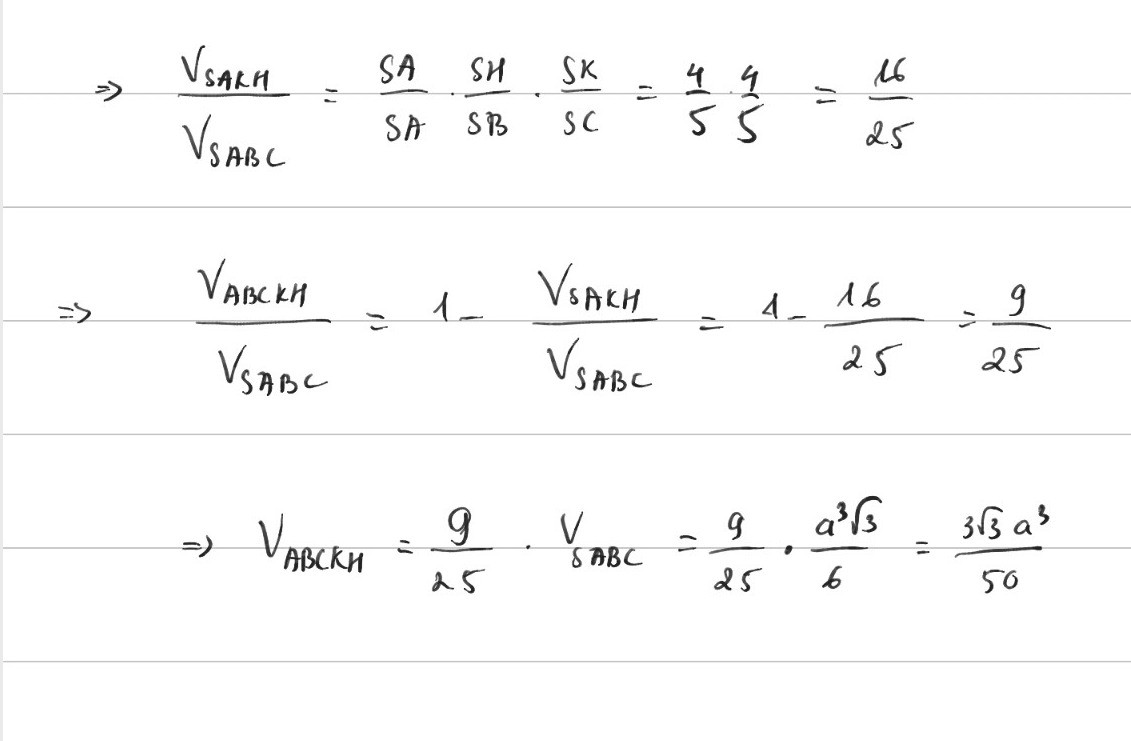 ⇒ V_SAKH / V_SABC = SA/SA · SH/SB · SK/SC = 4/5 · 4/5 = 16/25
⇒ V_ABCKH / V_SABC = 1 - V_SAKH / V_SABC = 1 - 16/25 = 9/25
⇒ V_ABCKH = 9/25 · V_SABC = 9/25 · a³√3/6 = 3√3 a³/50